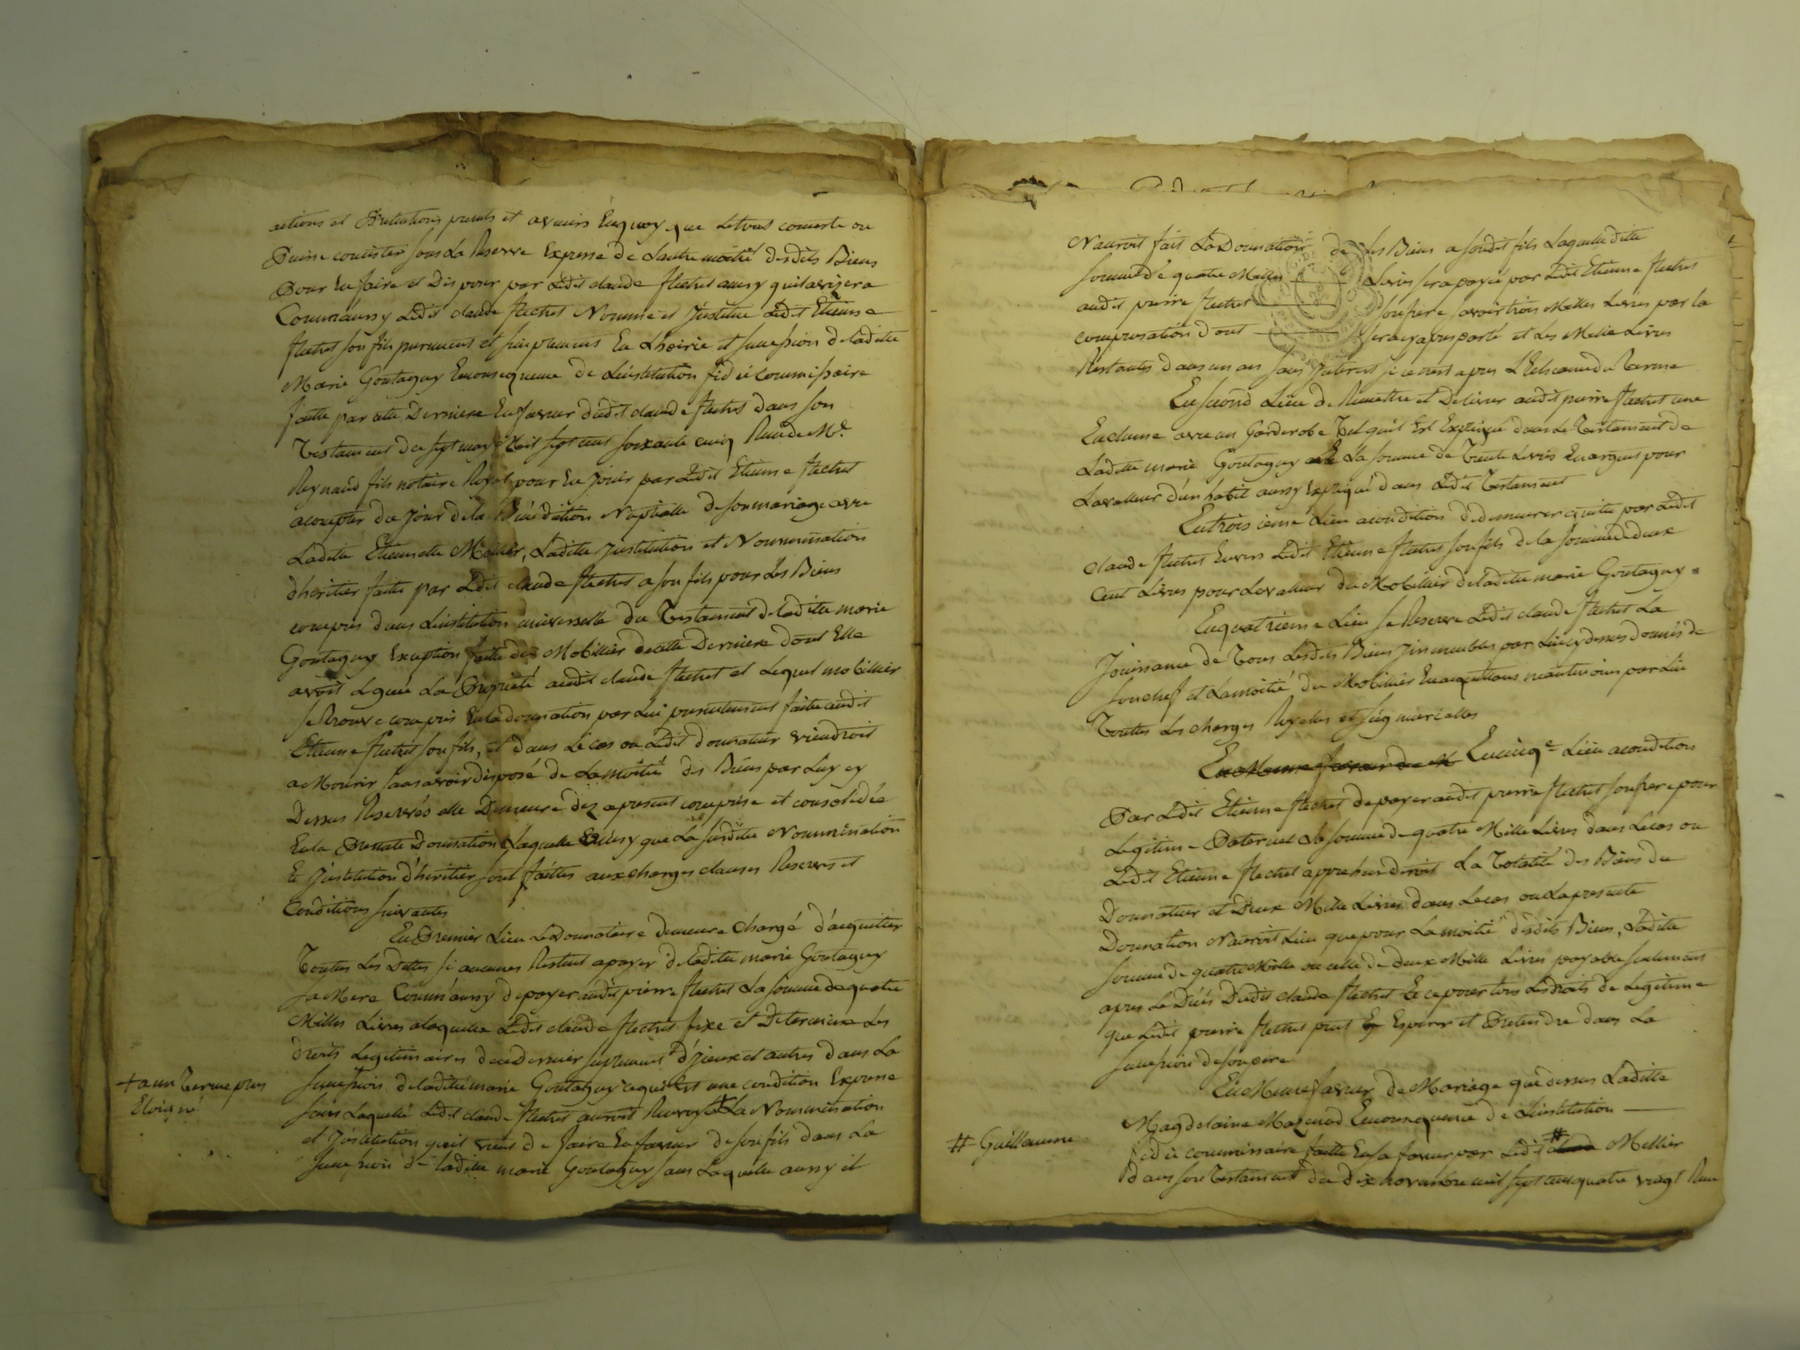 actions et Pretentions presents et avenirs Enquoy que letout conciste ou
Puisse concister sous La Reserve Expresse de Lautre moitié desdits Biens
Pour En faire et Disposer par Ledit claude flechet ainsy quil avisera
Comm'aussy Ledit claude flechet Nomme et Jnstitue Ledit Etienne
flechet son fils purement et simplement En Lhoirie et succession de laditte
Marie Goutagny Enconsequence de Linstitution fidei commissaire
faitte par cette Derniere En faveur dudit claude flechet dans son
Testament du sept may mil sept cent soixante cinq Reçu de Me.
Reynaud fils notaire Royal pour En Jouir par Ledit Etienne flechet
acompter du Jour de la Bénédiction Nuptialle de son mariage avec
Laditte Etiennette Mellier, Laditte Jnstitution et Nommination
dheritier faitte par Ledit claude flechet a son fils pour Les Biens
compris dans Linstitution universelle du Testament de laditte marie
Goutagny Exception faitte du Mobillier de cette Derniere dont Elle
avoit Legué La Propriété audit claude flechet et Lequel mobillier
se Trouve compris En la donnation par Lui presentement faitte audit
Etienne flechet son fils, et dans Le cas ou Ledit donnateur viendroit
a Mourir sans avoir disposé de La moitié des Biens par Luy cy
Dessus Reservés elle Demeure déz apresent comprise et consolidée
En la Presente Donnation Laquelle Ainsy que La susditte Nommination
Et Jnstitution d'héritier sont faittes aux charges clauses Reserves et
Conditions suivantes
En Premier Lieu Le Donnataire demeure Chargé d'acquitter
Touttes Les Dettes si aucunes Restent apayer de laditte marie Goutagny
sa Mere Comm'aussy de payer audit pierre flechet La somme de quatre
Milles Livres a laquelle Ledit claude flechet fixe et Determine Les
droits Legitimaires de ce dernier suplement d'jceux et autres dans La
succession de laditte marie Goutagny cequi Est une condition Expresse
sans Laquelle Ledit claude flechet auroit Renvoyé + La Nommination
et Jnstitution qu'il vient de faire En faveur de son fils dans La
succession de laditte marie Goutagny sans Laquelle aussy il
+ a un Terme plus
Eloigné
N'auroit fait La Donnation de Les Biens a son dit fils Laquelle ditte
somme de quatre Milles Livres sera payée par Ledit Etienne flechet
audit pierre flechet son frere savoir trois Milles Livres par la
compensation dont sera cy apres parlé et Les Mille Livres
Restantes dans un an sans Jnterest si ce n'est apres L'Echeance du Terme
En second Lieu de Remettre et Delivrer audit pierre flechet une
Enclume avec un Garderobe Tel quil Est Expliqué dans le Testament de
Laditte marie Goutagny La somme de Trente Livres En argent pour
La valleur d'un habit aussy Expliqué dans Ledit Testament
En troisieme Lieu acondition de demeurer quitte par Ledit
claude flechet Envers Ledit Etienne flechet son fils de la somme de deux
Cent Livres pour La valleur du Mobillier de laditte marie Goutagny.
En quatrieme Lieu se Reserve Ledit claude flechet La
Jouissance de Tous Lesdits Biens Jmmeubles par Lui cy dessus donnés de
son chef et La moitié du Mobillier En acquittant neantmoins par Lui
Touttes Les charges Royales et seigneurialles
En cinqe. Lieu acondition
Par Ledit Etienne flechet de payer audit pierre flechet son frere pour
Legitime Paternel La somme de quatre Mille Livres dans Le cas ou
Ledit Etienne flechet apprehenderoit La Totalité des Biens du
Donnateur et Deux Mille Livres dans Le cas ou La presente
Donnation N'auroit Lieu que pour La moitié desdits Biens, Laditte
somme de quatre Mille ou celle de deux Mille Livres payable seulement
apres Le Décés Dudit claude flechet Et ce pour tous Les droits de Legitime
que Ledit pierre flechet peut Esperer et Pretendre dans La
succession de son pere
En Meme faveur de Mariage que dessus Laditte
Magdelaine Maznod Enconsequence de Linstitution
fidei commissaire faitte En sa faveur par Ledit # Mellier
Dans son Testament du Dix novembre mil sept cent quatre vingt Reçu
# Guillaume